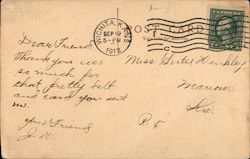 3-
WICHITA, KANS
SEP 19
5-PM
1912
POST CARD
Dear Friend,
Thank you ver
so much for
that pretty belt
and card you sent
me.
your Friend
J.N.
Miss Gertie
Ks.